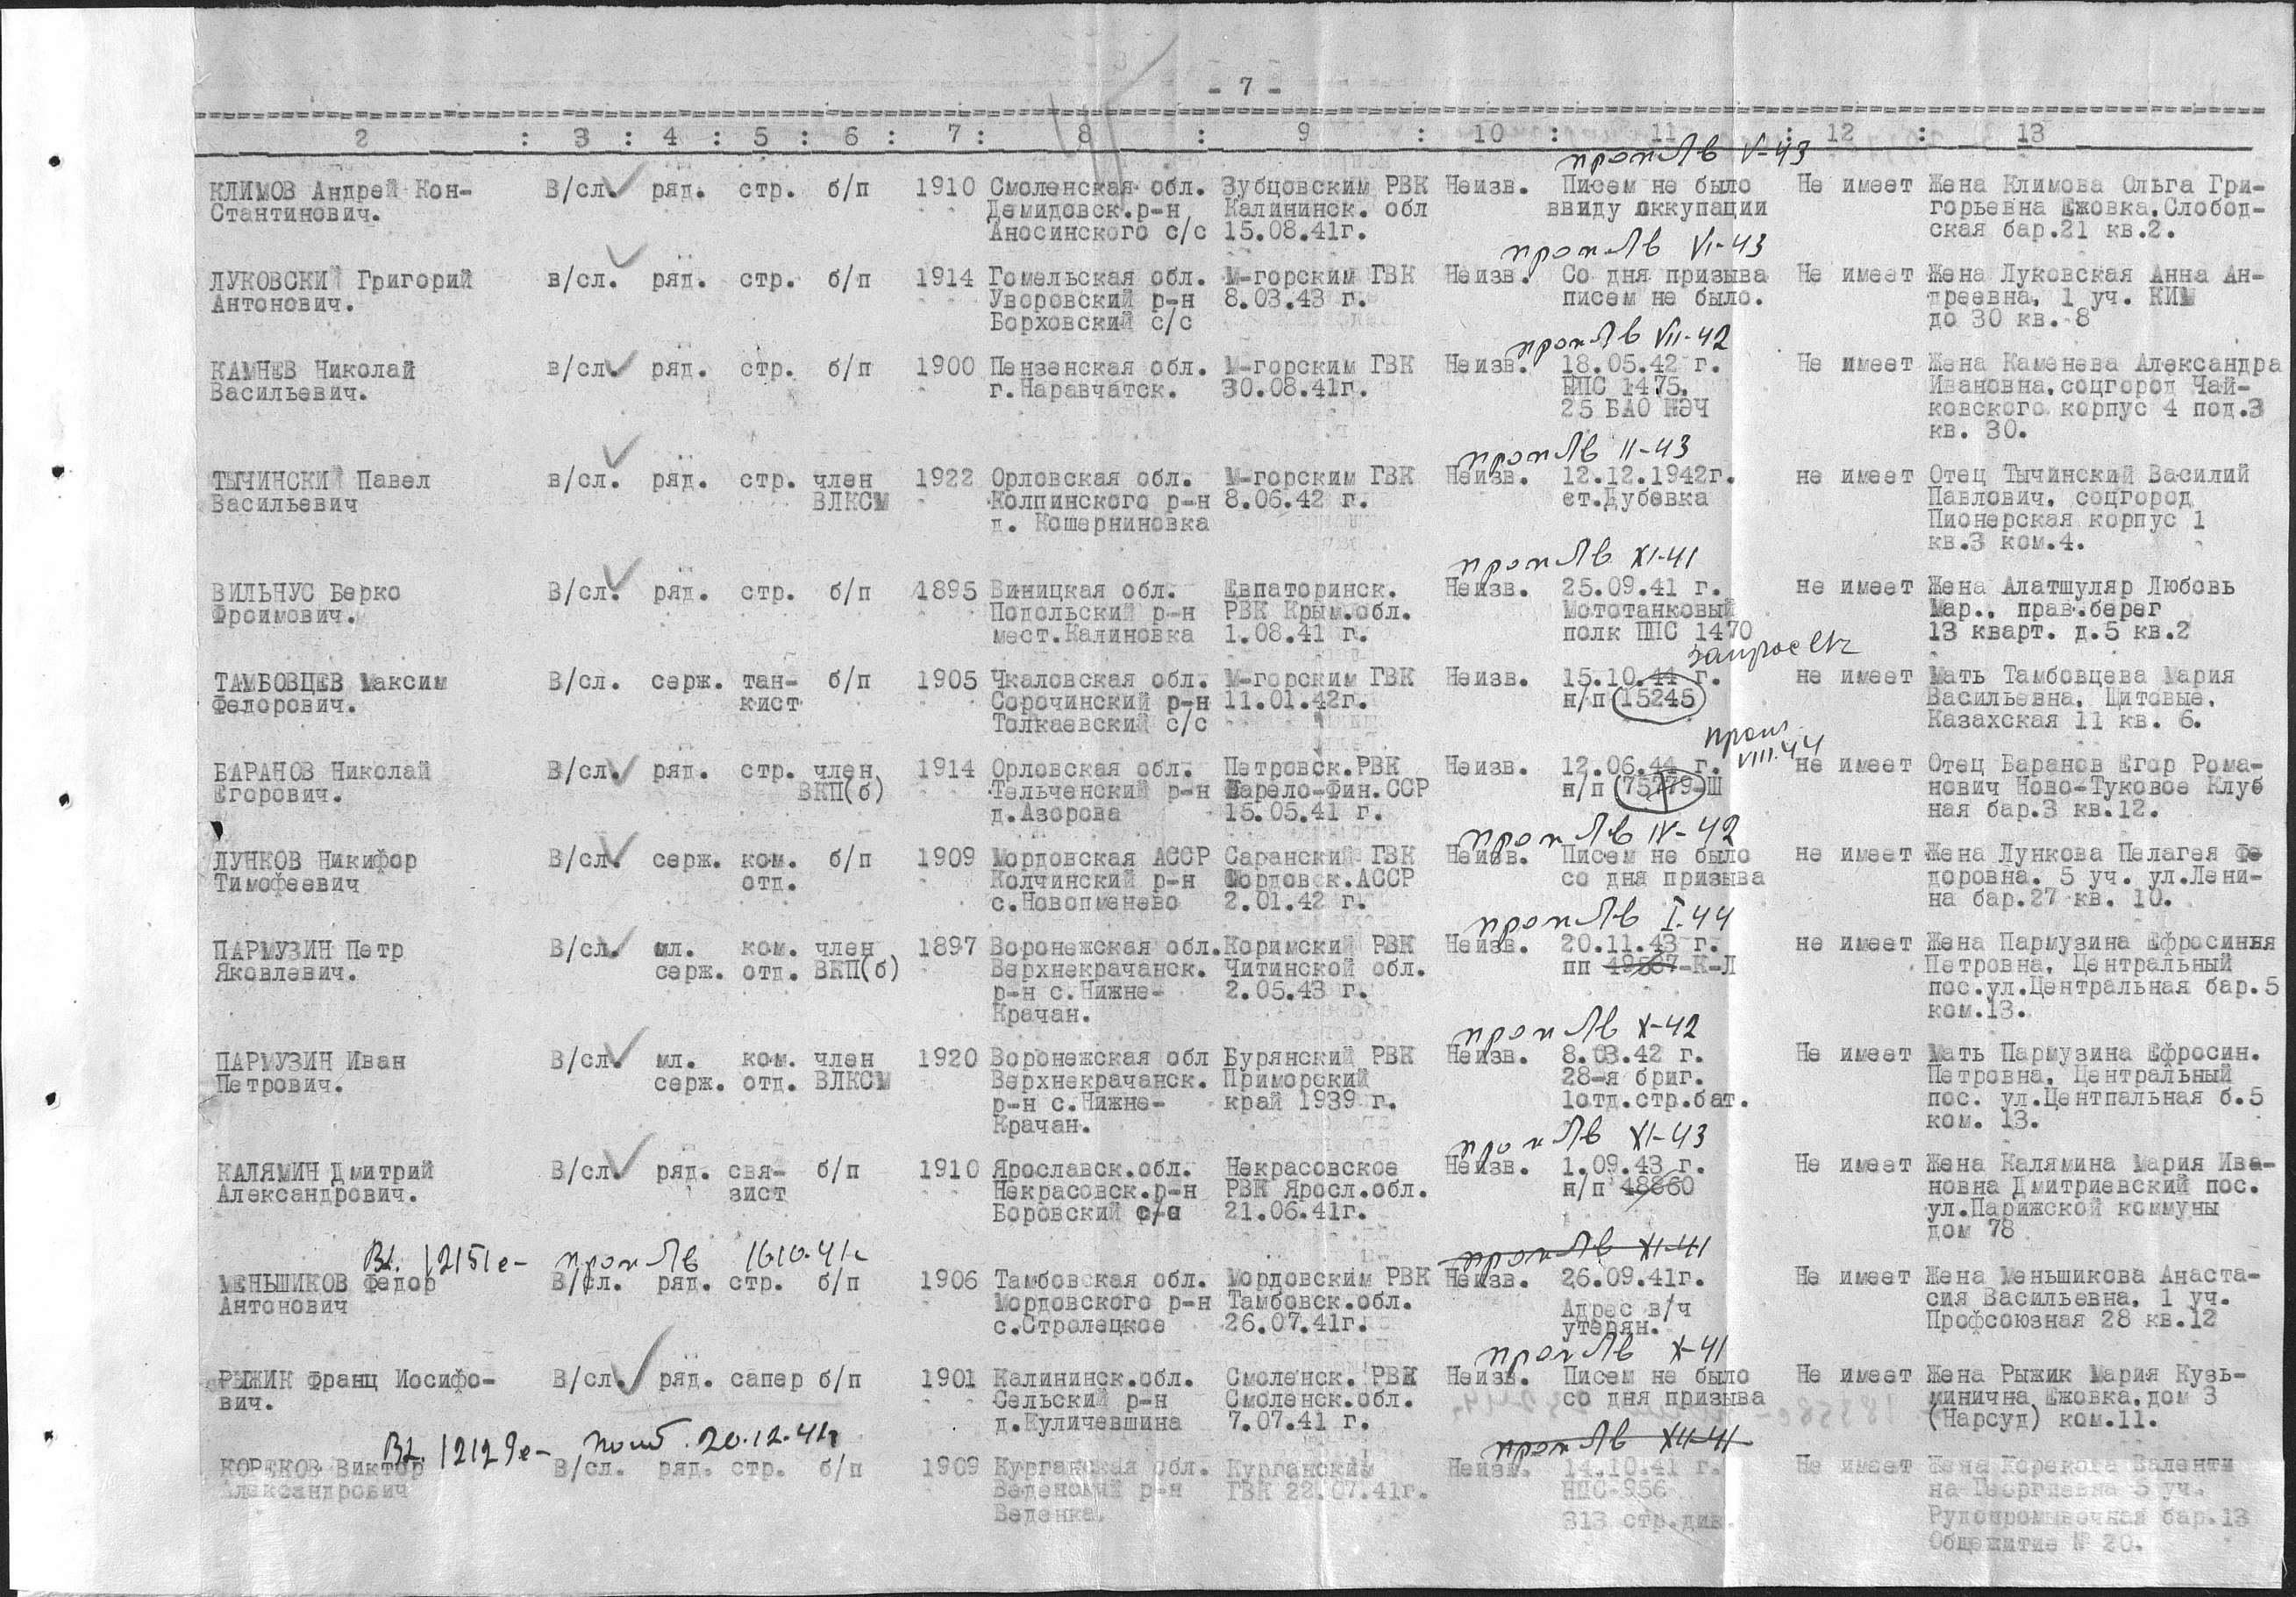 - 7 -
2 : 3 : 4 : 5 : 6 : 7 : 8 : 9 : 10 : 11 : 12 : 13
проп Лв V-43
КЛИМОВ Андрей Кон- В/сл. ряд. стр. б/п 1910 Смоленская обл. Зубцовским РВК Неизв. Писем не было Не имеет Жена Климова Ольга Гри-
Стантинович. Демидовск.р-н Калининск. обл ввиду оккупации горьевна Ежовка.Слобод-
Аносинского с/с 15.08.41г. ская бар.21 кв.2.
проп Лв VI-43
ЛУКОВСКИЙ Григорий в/сл. ряд. стр. б/п 1914 Гомельская обл. М-горским ГВК Неизв. Со дня призыва Не имеет Жена Луковская Анна Ан-
Антонович. Уворовский р-н 8.03.43 г. писем не было. дреевна. 1 уч. КИМ
Борховский с/с до 30 кв. 8
проп Лв VII-42
КАМНЕВ Николай в/сл. ряд. стр. б/п 1900 Пензенская обл. М-горским ГВК Неизв. 18.05.42 г. Не имеет Жена Каменева Александра
Васильевич. г.Наравчатск. 30.08.41г. ППС 1475. Ивановна.соцгород Чай-
25 БАО НЭЧ ковского корпус 4 под.3
кв. 30.
проп Лв II-43
ТЫЧИНСКИЙ Павел в/сл. ряд. стр. член 1922 Орловская обл. М-горским ГВК Неизв. 12.12.1942г. не имеет Отец Тычинский Василий
Васильевич ВЛКСМ Колпинского р-н 8.06.42 г. ст.Дубевка Павлович. соцгород
д. Кошерниновка Пионерская корпус 1
кв.3 ком.4.
проп Лв XI-41
ВИЛЬНУС Берко В/сл. ряд. стр. б/п 1895 Виницкая обл. Евпаторинск. Неизв. 25.09.41 г. не имеет Жена Алатшуляр Любовь
Фроимович. Подольский р-н РВК Крым.обл. Мототанковый Мар.. прав.берег
мест.Калиновка 1.08.41 г. полк ППС 1470 13 кварт. д.5 кв.2
запрос
ТАМБОВЦЕВ Максим В/сл. серж. тан- б/п 1905 Чкаловская обл. М-горским ГВК Неизв. 15.10.44 г. не имеет Мать Тамбовцева Мария
Федорович. кист Сорочинский р-н 11.01.42г. н/п 15245 Васильевна. Щитовые.
Толкаевский с/с Казахская 11 кв. 6.
проп
VIII.44
БАРАНОВ Николай В/сл. ряд. стр. член 1914 Орловская обл. Петровск.РВК Неизв. 12.06.44 г. не имеет Отец Баранов Егор Рома-
Егорович. ВКП(б) Тельченский р-н Карело-Фин.ССР н/п 75779-Ш нович Ново-Туковое Клуб
д.Азорова 15.05.41 г. ная бар.3 кв.12.
проп Лв IV-42
ЛУНКОВ Никифор В/сл. серж. ком. б/п 1909 Мордовская АССР Саранский ГВК Неизв. Писем не было не имеет Жена Лункова Пелагея Фе
Тимофеевич отд. Колчинский р-н Мордовск.АССР со дня призыва доровна. 5 уч. ул.Лени-
с.Новопменево 2.01.42 г. на бар.27 кв. 10.
проп Лв I.44
ПАРМУЗИН Петр В/сл. мл. ком. член 1897 Воронежская обл. Коримский РВК Неизв. 20.11.43 г. не имеет Жена Пармузина Ефросинья
Яковлевич. серж. отд. ВКП(б) Верхнекрачанск. Читинской обл. пп 49567-К-Л Петровна. Центральный
р-н с.Нижне- 2.05.43 г. пос.ул.Центральная бар.5
Крачан. ком.13.
проп Лв X-42
ПАРМУЗИН Иван В/сл. мл. ком. член 1920 Воронежская обл Бурянский РВК Неизв. 8.03.42 г. Не имеет Мать Пармузина Ефросин.
Петрович. серж. отд. ВЛКСМ Верхнекрачанск. Приморский 28-я бриг. Петровна. Центральный
р-н с.Нижне- край 1939 г. 1отд.стр.бат. пос. ул.Центпальная б.5
Крачан. ком. 13.
проп Лв XI-43
КАЛЯМИН Дмитрий В/сл. ряд. свя- б/п 1910 Ярославск.обл. Некрасовское Неизв. 1.09.43 г. Не имеет Жена Калямина Мария Ива-
Александрович. зист Некрасовск.р-н РВК Яросл.обл. н/п 48860 новна Дмитриевский пос.
Боровский с/с 21.06.41г. ул.Парижской коммуны
дом 78
Вх. 12151с- проп Лв 16.10.41г проп Лв XI-41
МЕНЬШИКОВ Федор В/сл. ряд. стр. б/п 1906 Тамбовская обл. Мордовским РВК Неизв. 26.09.41г. Не имеет Жена Меньшикова Анаста-
Антонович Мордовского р-н Тамбовск.обл. Адрес в/ч сия Васильевна. 1 уч.
с.Стролецкое 26.07.41г. утерян. Профсоюзная 28 кв.12
проп Лв X-41
РЫЖИК Франц Иосифо- В/сл. ряд. сапер б/п 1901 Калининск.обл. Смоленск. РВК Неизв. Писем не было Не имеет Жена Рыжик Мария Кузь-
вич. Сельский р-н Смоленск.обл. со дня призыва минична Ежовка.дом 3
д.Куличевшина 7.07.41 г. (Нарсуд) ком.11.
Вх. 12129с- погиб. 20.12.41г проп Лв XII-41
КОРЕКОВ Виктор В/сл. ряд. стр. б/п 1909 Курганская обл. Курганским Неизв. 14.10.41 г. Не имеет Жена Корекова Валенти
Александрович Веденский р-н ГВК 22.07.41г. ППС-956 на Георгиевна 5 уч.
Веденка. 313 стр.див. Рудопромывочная бар.13
Общежитие № 20.